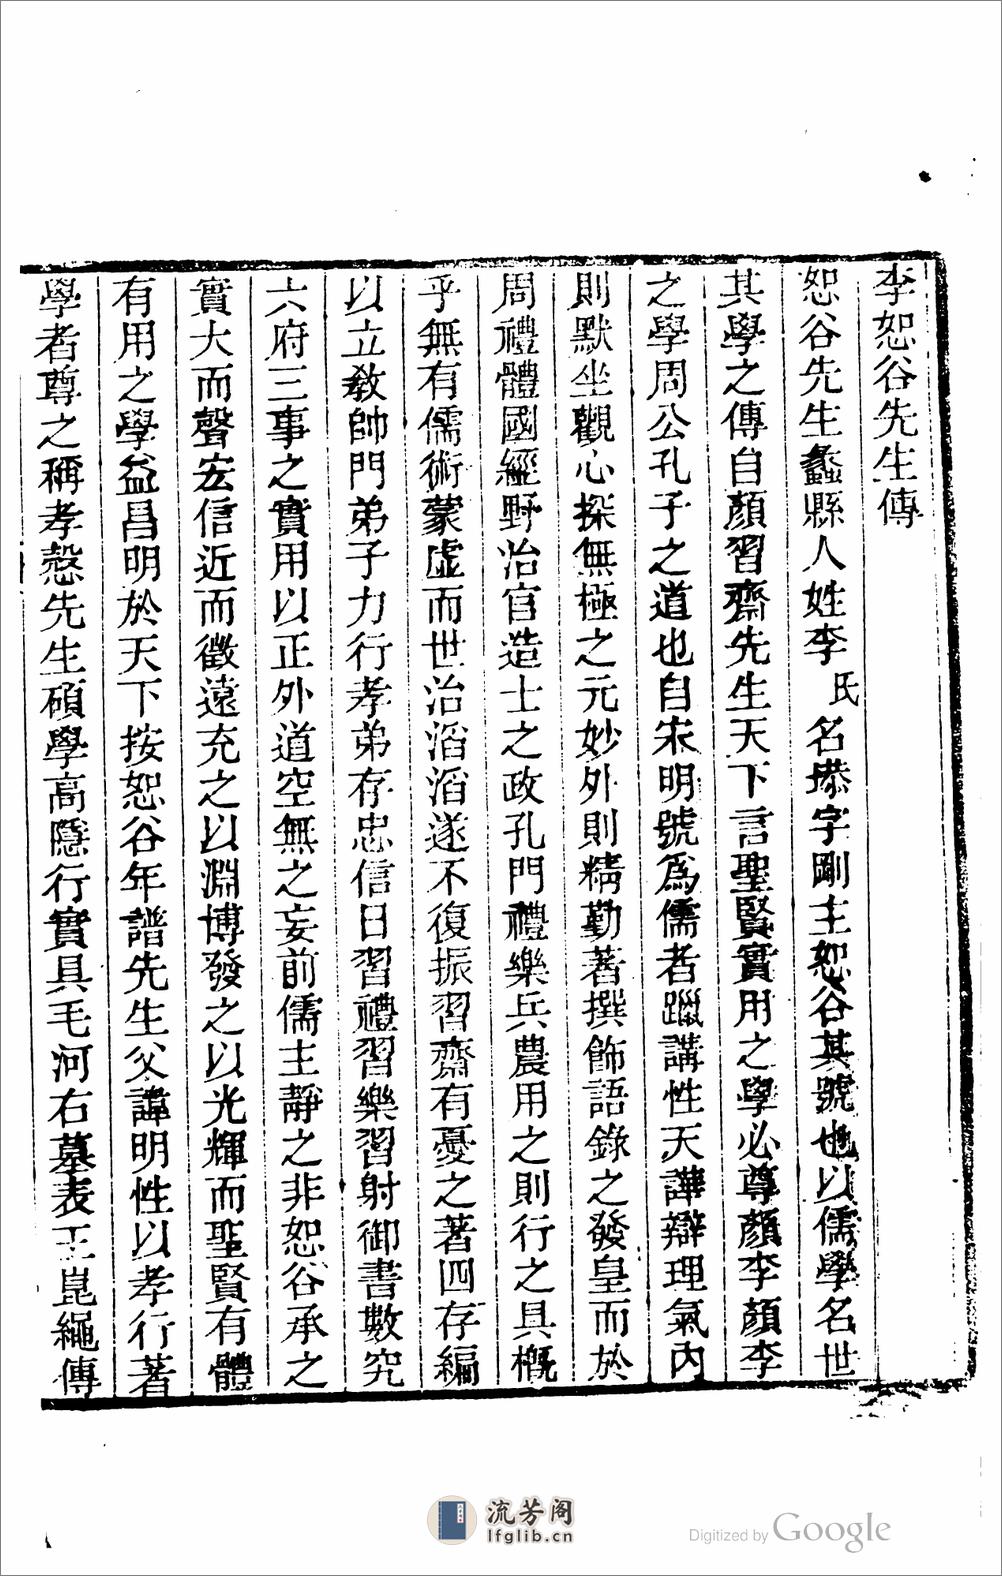 李恕谷先生傳
恕谷先生蠡縣人姓李氏名塨字剛主恕谷其號也以儒學名世
其學之傳自顏習齋先生天下言聖賢實用之學必尊顏李顏李
之學周公孔子之道也自宋明號爲儒者躐講性天譁辯理氣內
則默坐觀心探無極之元妙外則精勤著撰飾語錄之發皇而於
周禮體國經野治官造士之政孔門禮樂兵農用之則行之具槪
乎無有儒術蒙虛而世治滔滔遂不復振習齋有憂之著四存編
以立敎帥門弟子力行孝弟存忠信日習禮習樂習射御書數究
六府三事之實用以正外道空無之妄前儒主靜之非恕谷承之
實大而聲宏信近而徵遠充之以淵博發之以光輝而聖賢有體
有用之學益昌明於天下按恕谷年譜先生父諱明性以孝行著
學者尊之稱孝愨先生碩學高隱行實具毛河右墓表王崑繩傳
流芳阁
lfglib.cn
Digitized by Google